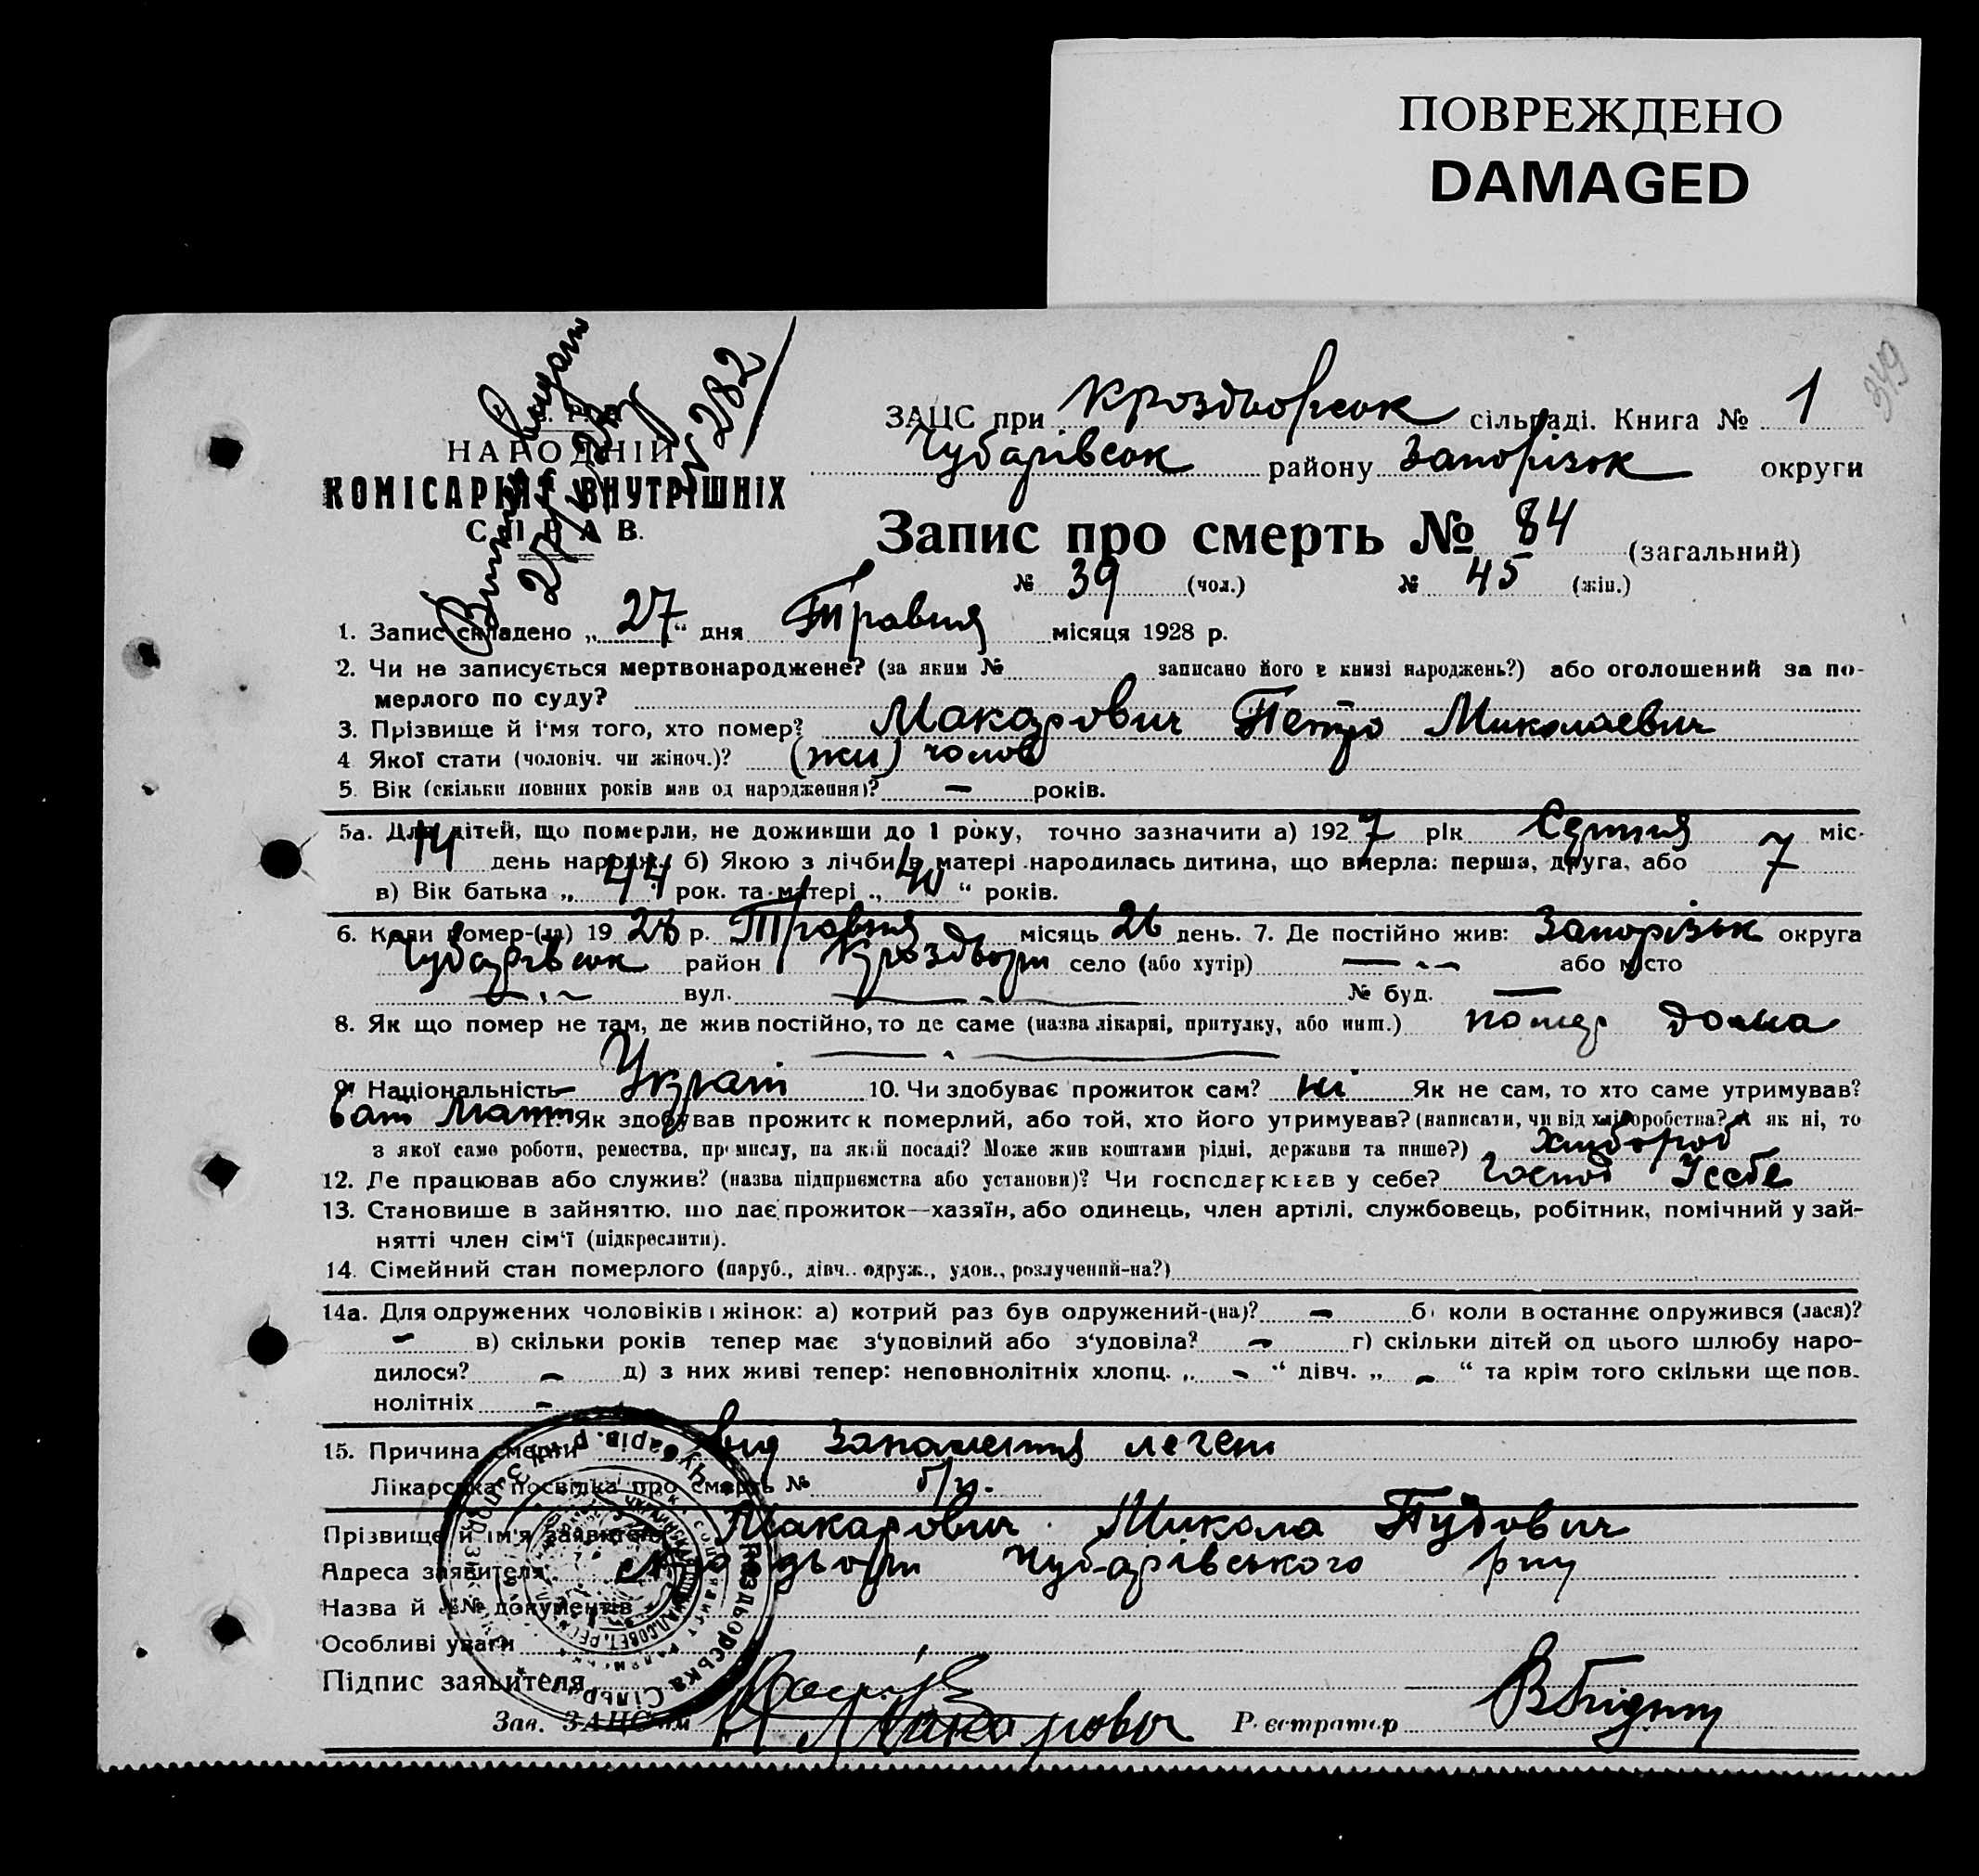 ПОВРЕЖДЕНО
DAMAGED
349
НАРОДНІЙ
КОМІСАРІЯТ ВНУТРІШНІХ
СПРАВ.
27/
№ 282
ЗАЦС при Кроздворсок сільраді. Книга № 1
Чубарівсок району Запорізок округи
Запис про смерть № 84 (загальний)
№ 39 (чол.) № 45 (жін.)
1. Запис складено „27“ дня Травня місяця 1928 р.
2. Чи не записується мертвонароджене? (за яким № записано його в книзі народжень?) або оголошений за по-
мерлого по суду?
3. Прізвище й і'мя того, хто помер? Макарович Петро Миколаевич
4 Якої стати (чоловіч. чи жіноч.)? (жи) чолов
5. Вік (скільки повних років мав од народження)? — років.
5а. Для дітей, що померли, не доживши до 1 року, точно зазначити а) 1927 рік Серпня міс.
14 день народж. б) Якою з лічби в матері народилась дитина, що вмерла: перша, друга, або 7
в) Вік батька „44 рок. та матері „40“ років.
6. Коли помер-(ла) 1928 р. Травня місяць 26 день. 7. Де постійно жив: Запорізьк округа
Чубарівсок район Кроздвори село (або хутір) — або місто
— вул. — № буд. —
8. Як що помер не там, де жив постійно, то де саме (назва лікарні, притулку, або инш.) помер дома
9. Національність Украіні 10. Чи здобуває прожиток сам? ні Як не сам, то хто саме утримував?
бат Мати 11. Як здобував прожиток померлий, або той, хто його утримував? (написати, чи від хліборобства? А як ні, то
з якої саме роботи, ремества, промислу, на якій посаді? Може жив коштами рідні, держави та инше?) хлібороб
12. Де працював або служив? (назва підприємства або установи)? Чи господарював у себе? Господ Усебе
13. Становище в зайняттю, що дає прожиток—хазяїн, або одинець, член артілі, службовець, робітник, помічний у зай-
нятті член сім'ї (підкреслити).
14. Сімейний стан померлого (паруб., дівч.. одруж., удов., розлучений-на?)
14а. Для одружених чоловіків і жінок: а) котрий раз був одружений-(на)? — б) коли востаннє одружився (лася)?
— в) скільки років тепер має з'удовілий або з'удовіла? — г) скільки дітей од цього шлюбу наро-
дилося? — д) з них живі тепер: неповнолітніх хлопц. „ — “ дівч. „ — “ та крім того скільки ще пов-
нолітніх —
15. Причина смерти від Запалення легені
Лікарська посвідка про смерть № б/н.
Прізвище й ім'я заявителя Макарович Микола Пудович
Адреса заявителя Чубарівського рну
Назва й №№ документів
Особливі уваги
Підпис заявителя
Зав. ЗАЦС'ом Реєстратор